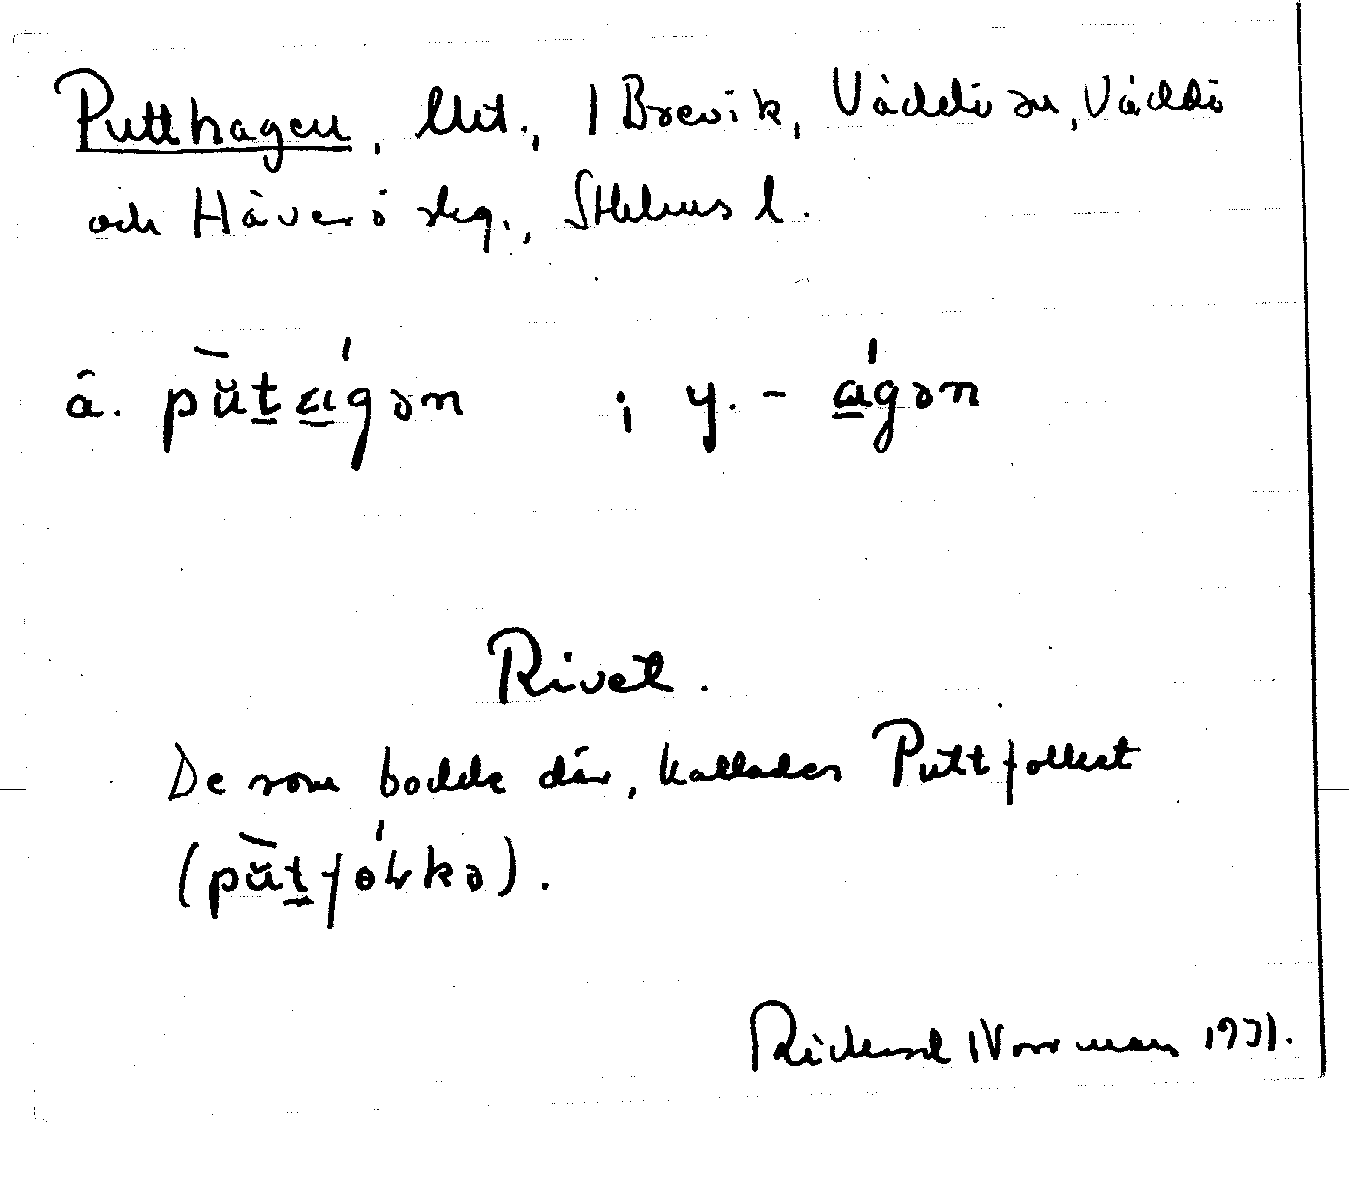 Putthagen, lht., 1 Brevik, Väddö sn, Väddö
och Häverö skg., Sthlms l.
ä. pŭ̀t̲á̲gən ; y. - á̲gən
Rivet.
De som bodde där, kallades Puttfolket
(pŭ̀t̲fóɫkə).
Richard Norrman 1931.